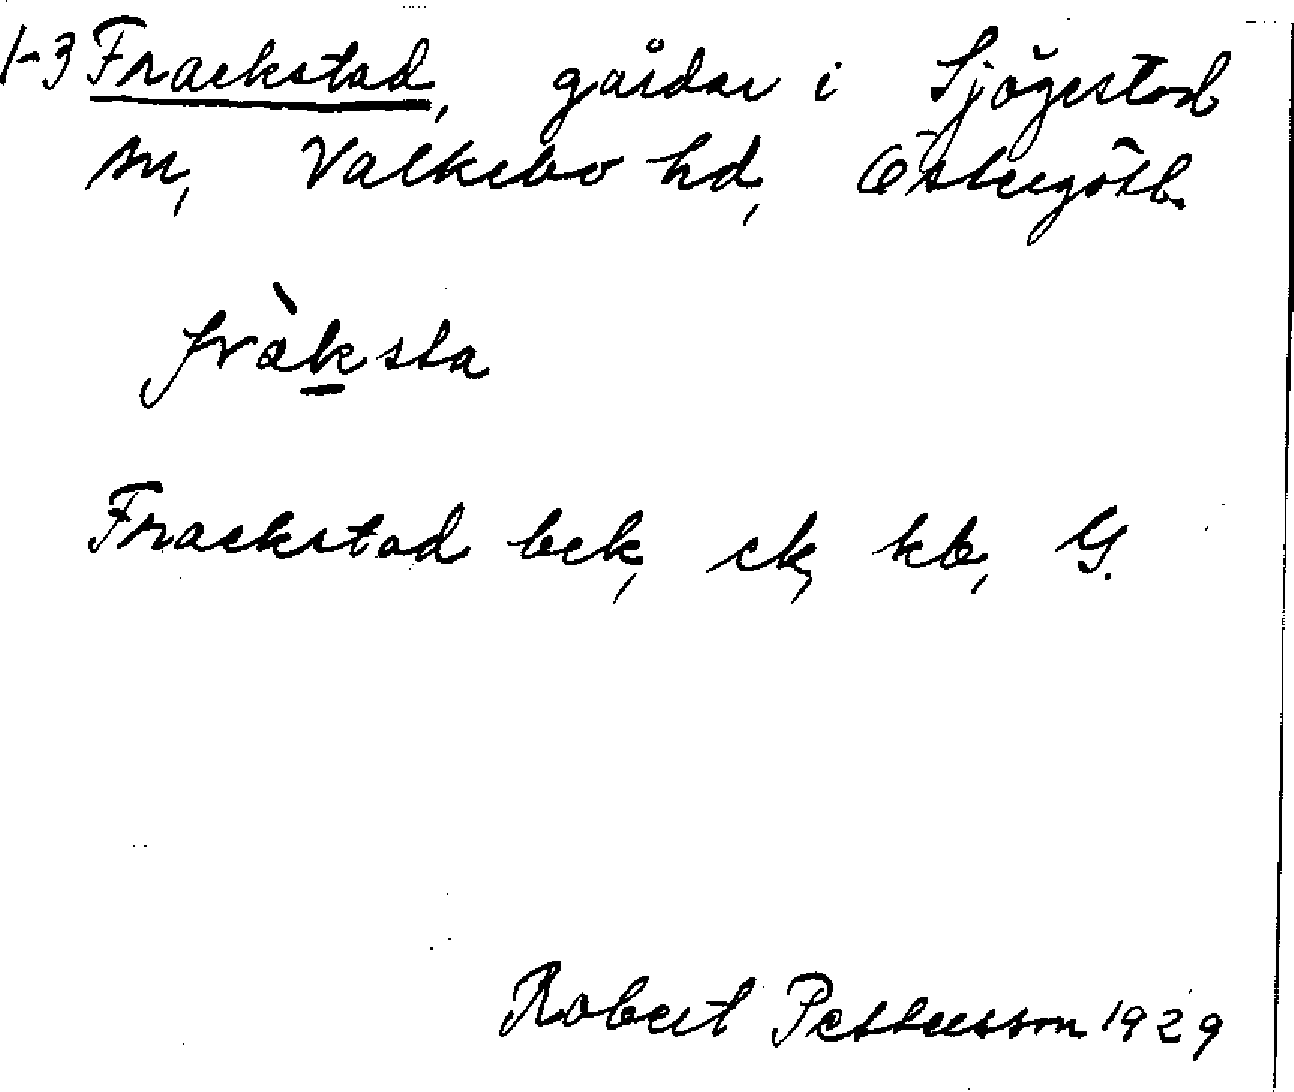 1-3 Frackstad, gårdar i Sjögestad
sn, Valkebo hd, Östergötl.
fràksta
Frackstad bck, ek, kb, G.
Robert Pettersson 1929